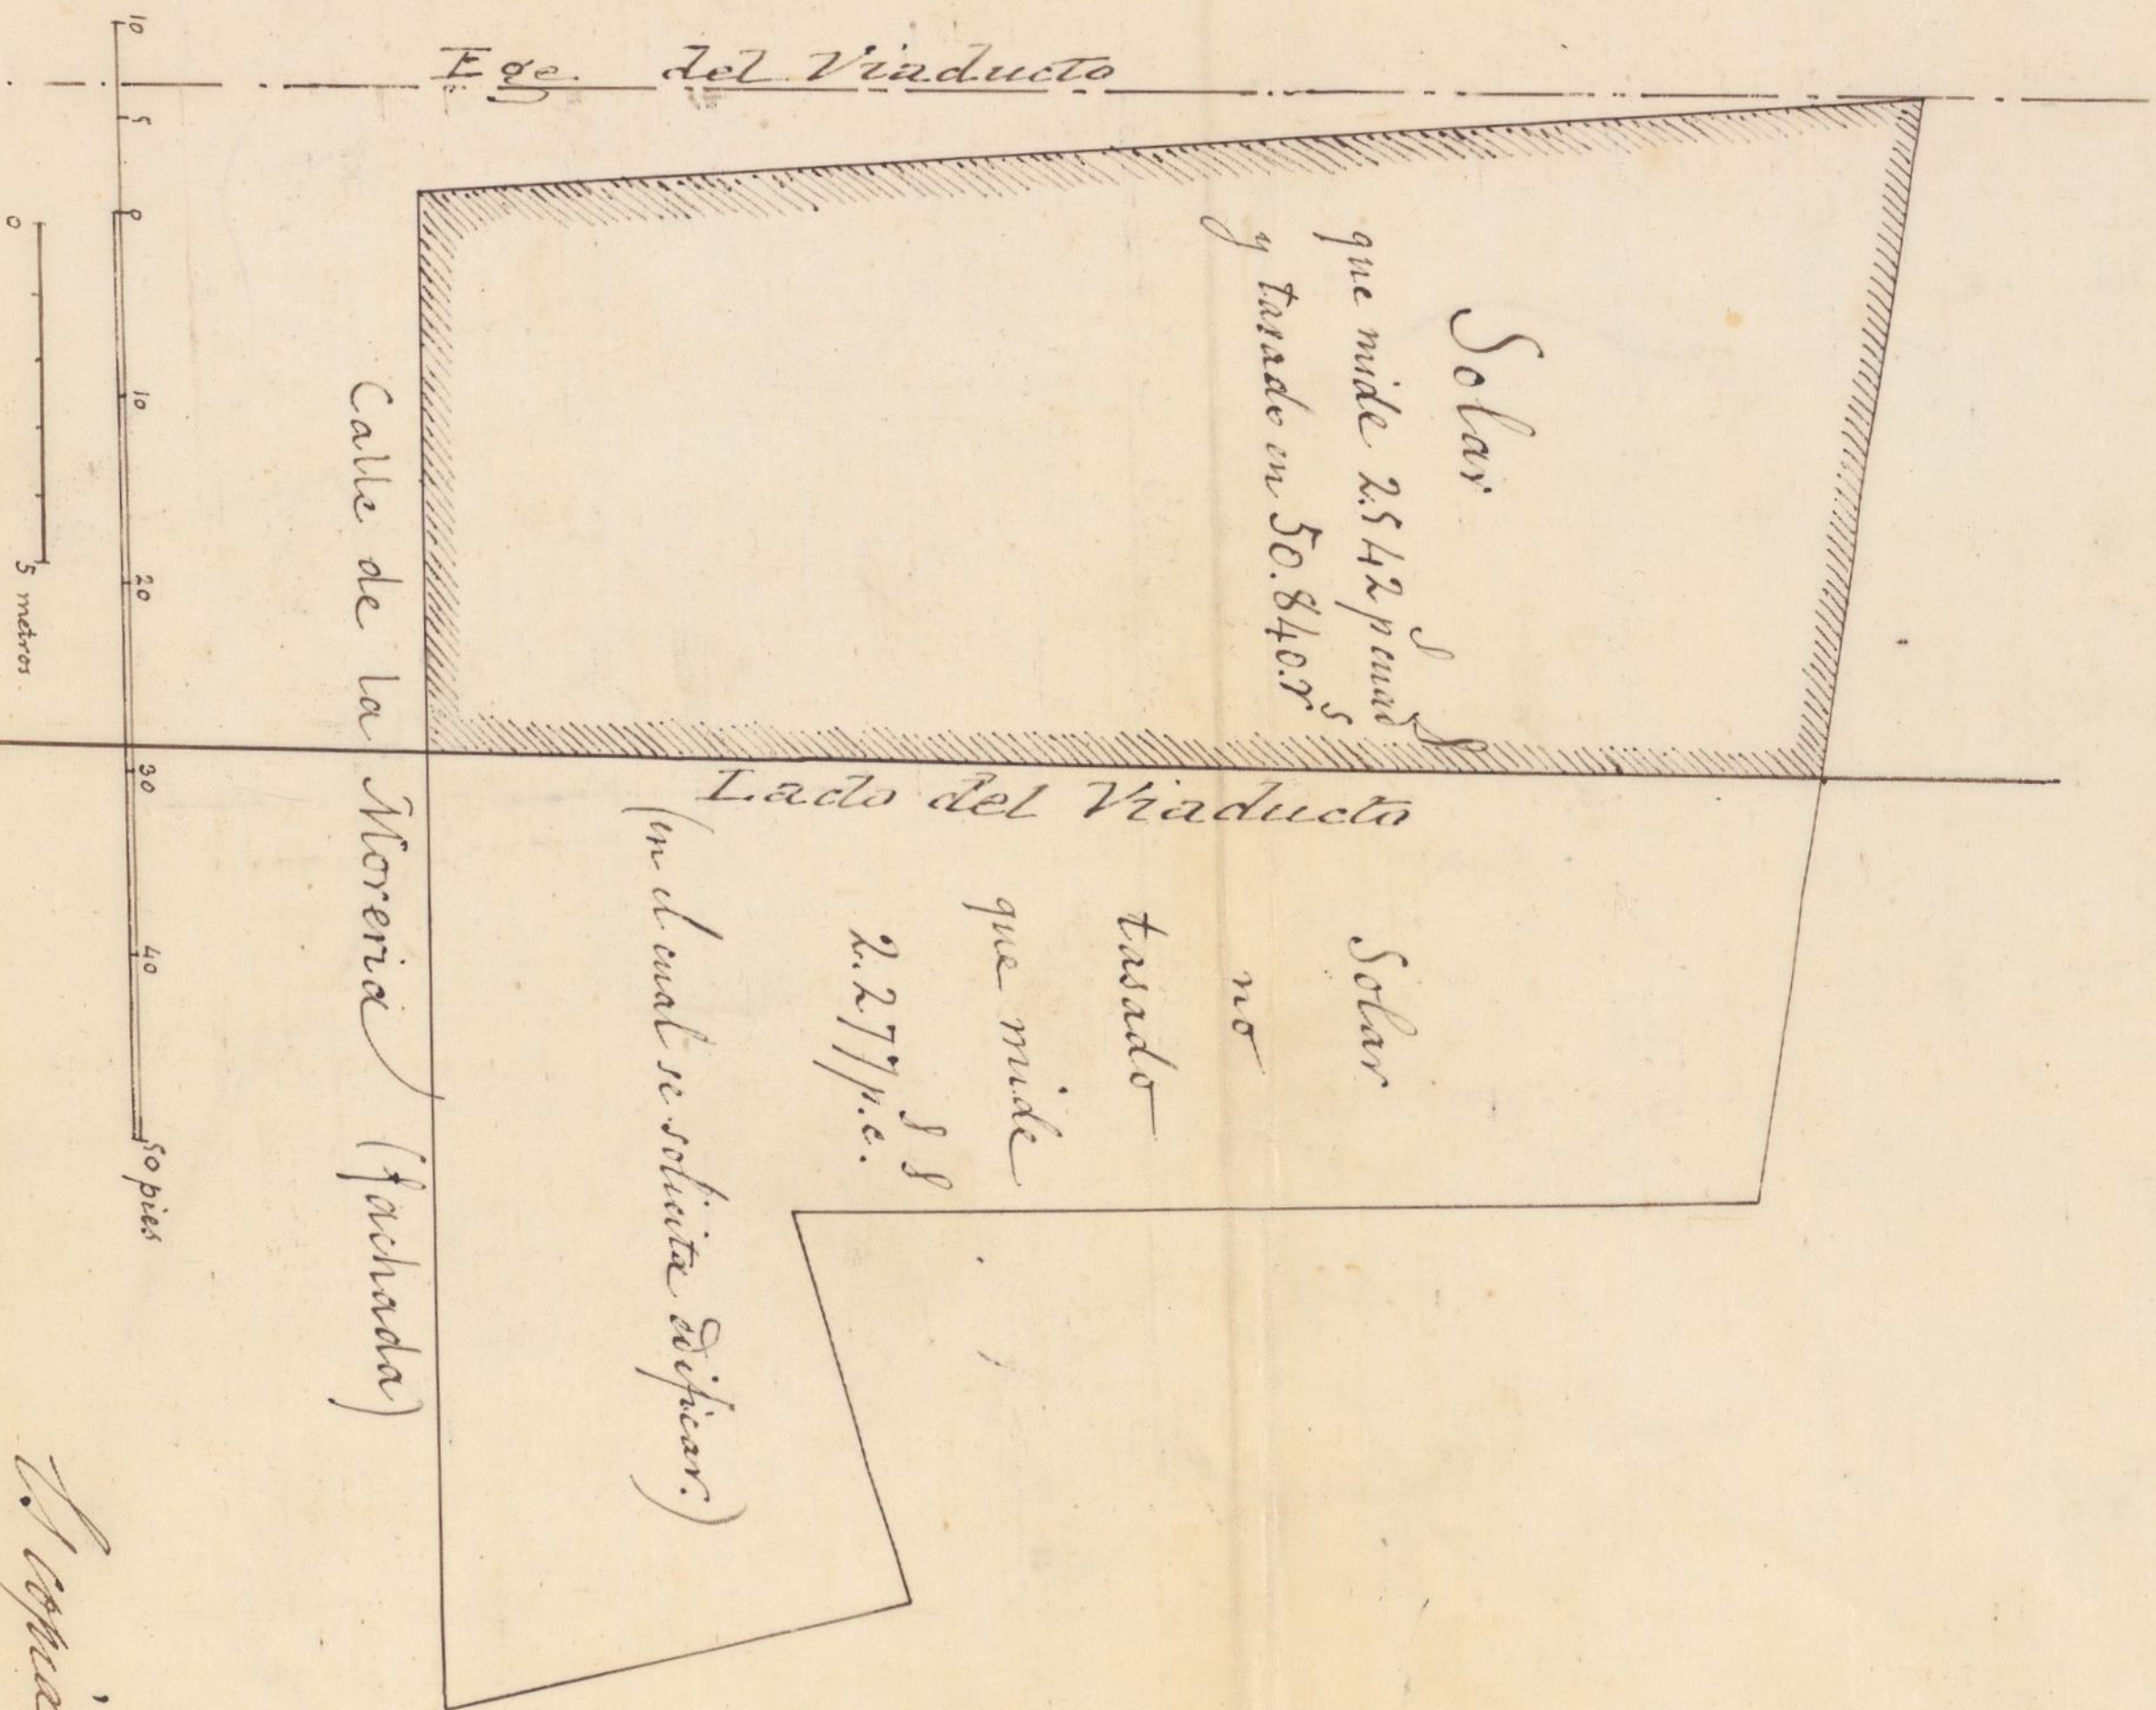 Ege del Viaducto
Solar
que mide 2.542 p^s cuad^s
y tasado en 50.840. r^s
Lado del Viaducto
Solar
no
tasado
que mide
2.277 p.^s c.^s
(en el cual se solicita edificar.)
Calle de la Moreria (fachada)
10 5 0 10 20 30 40 50 pies
0 5 metros.
Es copia